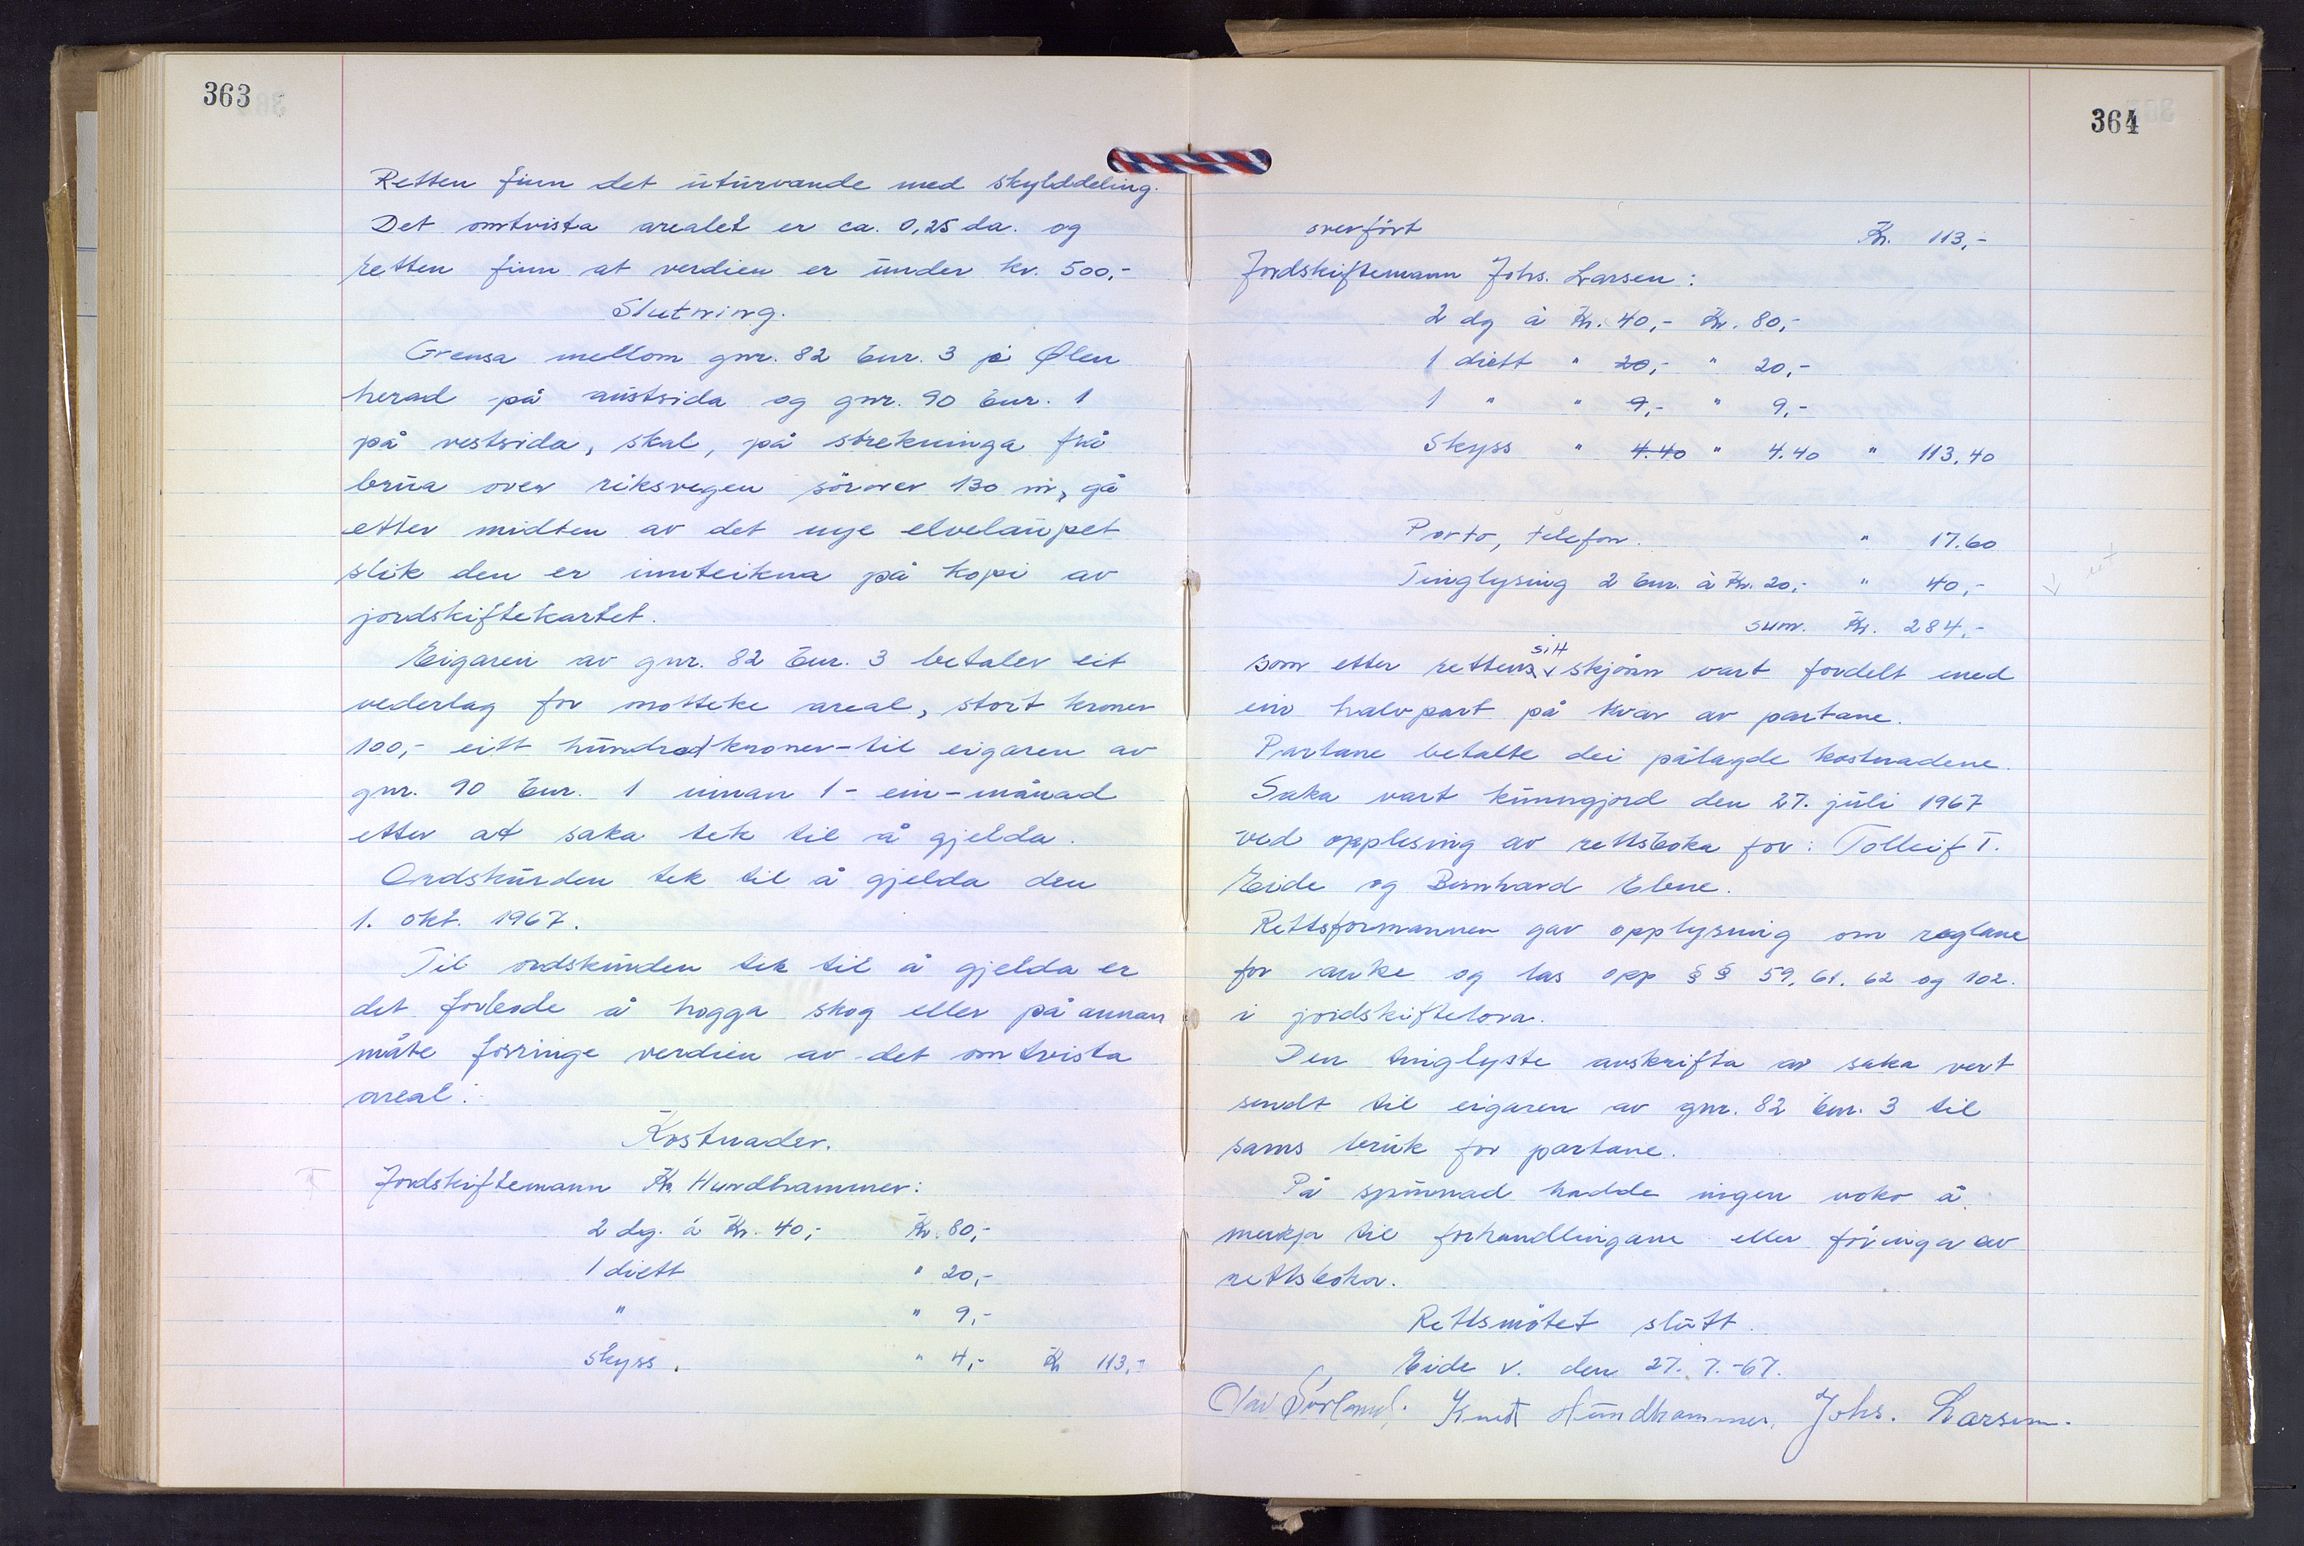 363
Retten finn det uturvande med skylddeling.
Det omtvista arealet er ca. 0,25 da. og
retten finn at verdien er under kr. 500,-
Slutning.
Grensa mellom gnr. 82 bnr. 3 i Ølen
herad på austsida og gnr. 90 bnr. 1
på vestsida, skal, på strekninga frå
brua over riksvegen sörover 130 m, gå
etter midten av det nye elvelaupet
slik den er innteikna på kopi av
jordskiftekartet.
Eigaren av gnr. 82 bnr. 3 betaler eit
vederlag for motteke areal, stort kroner
100,- eitt hundred kroner - til eigaren av
gnr. 90 bnr. 1 innan 1 - ein - månad
etter at saka tek til å gjelda.
Ordskurden tek til å gjelda den
1. okt. 1967.
Til ordskurden tek til å gjelda er
det forbode å hogga skog eller på annan
måte forringe verdien av det omtvista
areal.
Kostnader.
Jordskiftemann Kn. Hundhammer:
2 dg. á Kr. 40,- Kr. 80,-
1 diett " 20,-
" " 9,-
Skyss. " 4,- Kr 113,-
364
overfört Kr. 113,-
Jordskiftemann Johs. Larsen:
2 dg á Kr. 40,- Kr. 80,-
1 diett " 20,- " 20,-
1 " " 9,- " 9,-
Skyss " 4.40 " 4.40 " 113,40
Porto, telefon. " 17.60
Tinglysing 2 bnr. á Kr. 20,- " 40,-
sum. Kr. 284,-
som etter rettens sitt skjönn vart fordelt med
ein halvpart på kvar av partane.
Partane betalte dei pålagde kostnadene.
Saka vart kunngjord den 27. juli 1967
ved opplesing av rettsboka for: Tolleif T.
Eide og Bernhard Ebne.
Rettsformannen gav opplysning om reglane
for anke og las opp § § 59, 61, 62 og 102.
i jordskiftelova.
Den tinglyste avskrifta av saka vert
sendt til eigaren av gnr. 82 bnr. 3 til
sams bruk for partane.
På spurnad hadde ingen noko å
merkja til forhandlingane eller föringa av
rettsboka.
Rettsmötet slutt.
Eide v. den 27.7.-67.
Olav Sørland. Knut Hundhammer. Johs. Larsen.